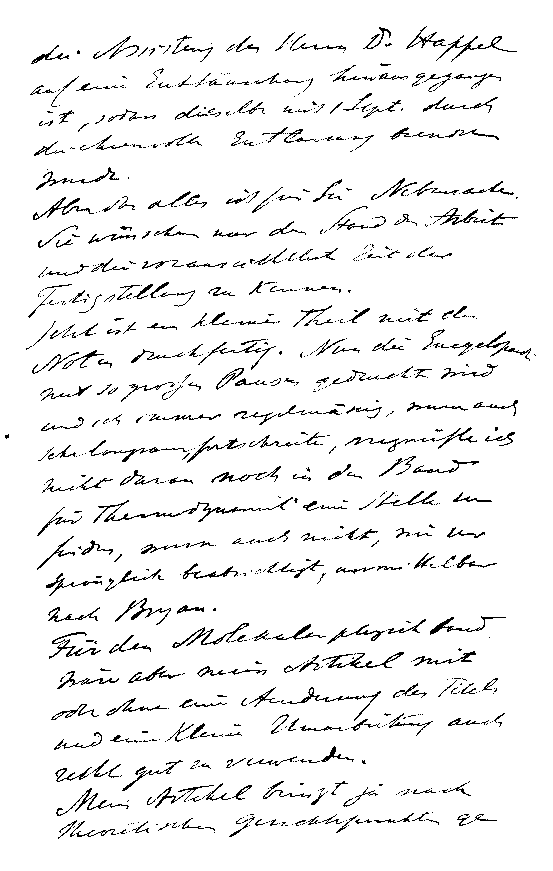 die Assistenz des Herrn Dr. Happel
auf eine Enttäuschung hinausgegangen
ist, sodass dieselbe mit 1 Sept. durch
Entlassung
wurde.
Aber das alles ist für Sie Nebensache.
Sie wünschen nur den Stand der Arbeit
und die voraussichtlich Zeit der
Fertigstellung zu kennen.
Jetzt ist ein kleiner Theil mit den
Noten druckfertig. Nun die Encyclopaedie
mit so grossen Pausen gedruckt wird
und ich immer regelmässig, wenn auch
sehr langsam, fortschreite, verzweifle ich
nicht daran noch in den Band
für Thermodynamik eine Stelle zu
finden, wenn auch nicht, wie ur
sprünglich beabsichtigt, unmittelbar
nach Bryan.
Für den Molekularphysik band
wäre aber mein Artikel mit
oder ohne eine Aenderung des Titels
und eine kleine Umarbeitung auch
recht gut zu verwenden.
Mein Artikel bringt ja nach
theoretischen Gesichtspunkten ge